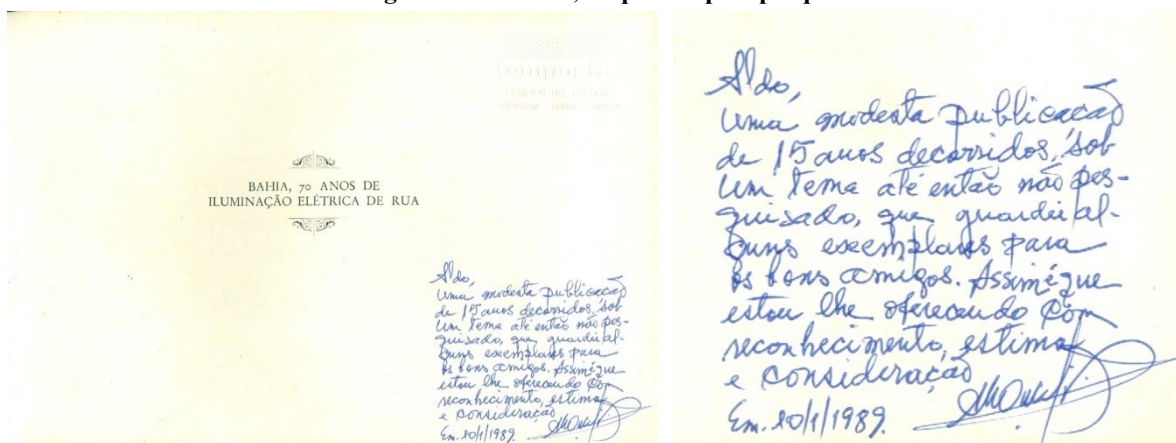 BAHIA, 70 ANOS DE
ILUMINAÇÃO ELÉTRICA DE RUA
Aldo,
uma modesta publicação
de 15 anos decorridos, sob
um tema até então não pes-
quisado, que guardei al-
guns exemplares para
os bons amigos. Assim é que
estou lhe oferecendo com
reconhecimento, estima
e consideração
Em. 10/1/1989.
Aldo,
uma modesta publicação
de 15 anos decorridos, sob
um tema até então não pes-
quisado, que guardei al-
guns exemplares para
os bons amigos. Assim é que
estou lhe oferecendo com
reconhecimento, estima
e consideração
Em. 10/1/1989.